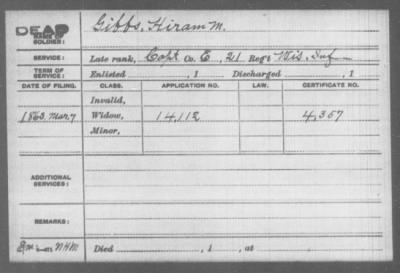 DEAD
NAME OF SOLDIER: Gibbs, Hiram M.
SERVICE: Late rank, Capt Co. E, 21 Reg't Wis. Inf
TERM OF SERVICE: Enlisted , 1 Discharged , 1
DATE OF FILING. CLASS. APPLICATION NO. LAW. CERTIFICATE NO.
Invalid,
1863. Mar 7 Widow, 14,112 4,357
Minor,
ADDITIONAL SERVICES:
REMARKS:
Died , 1 , at